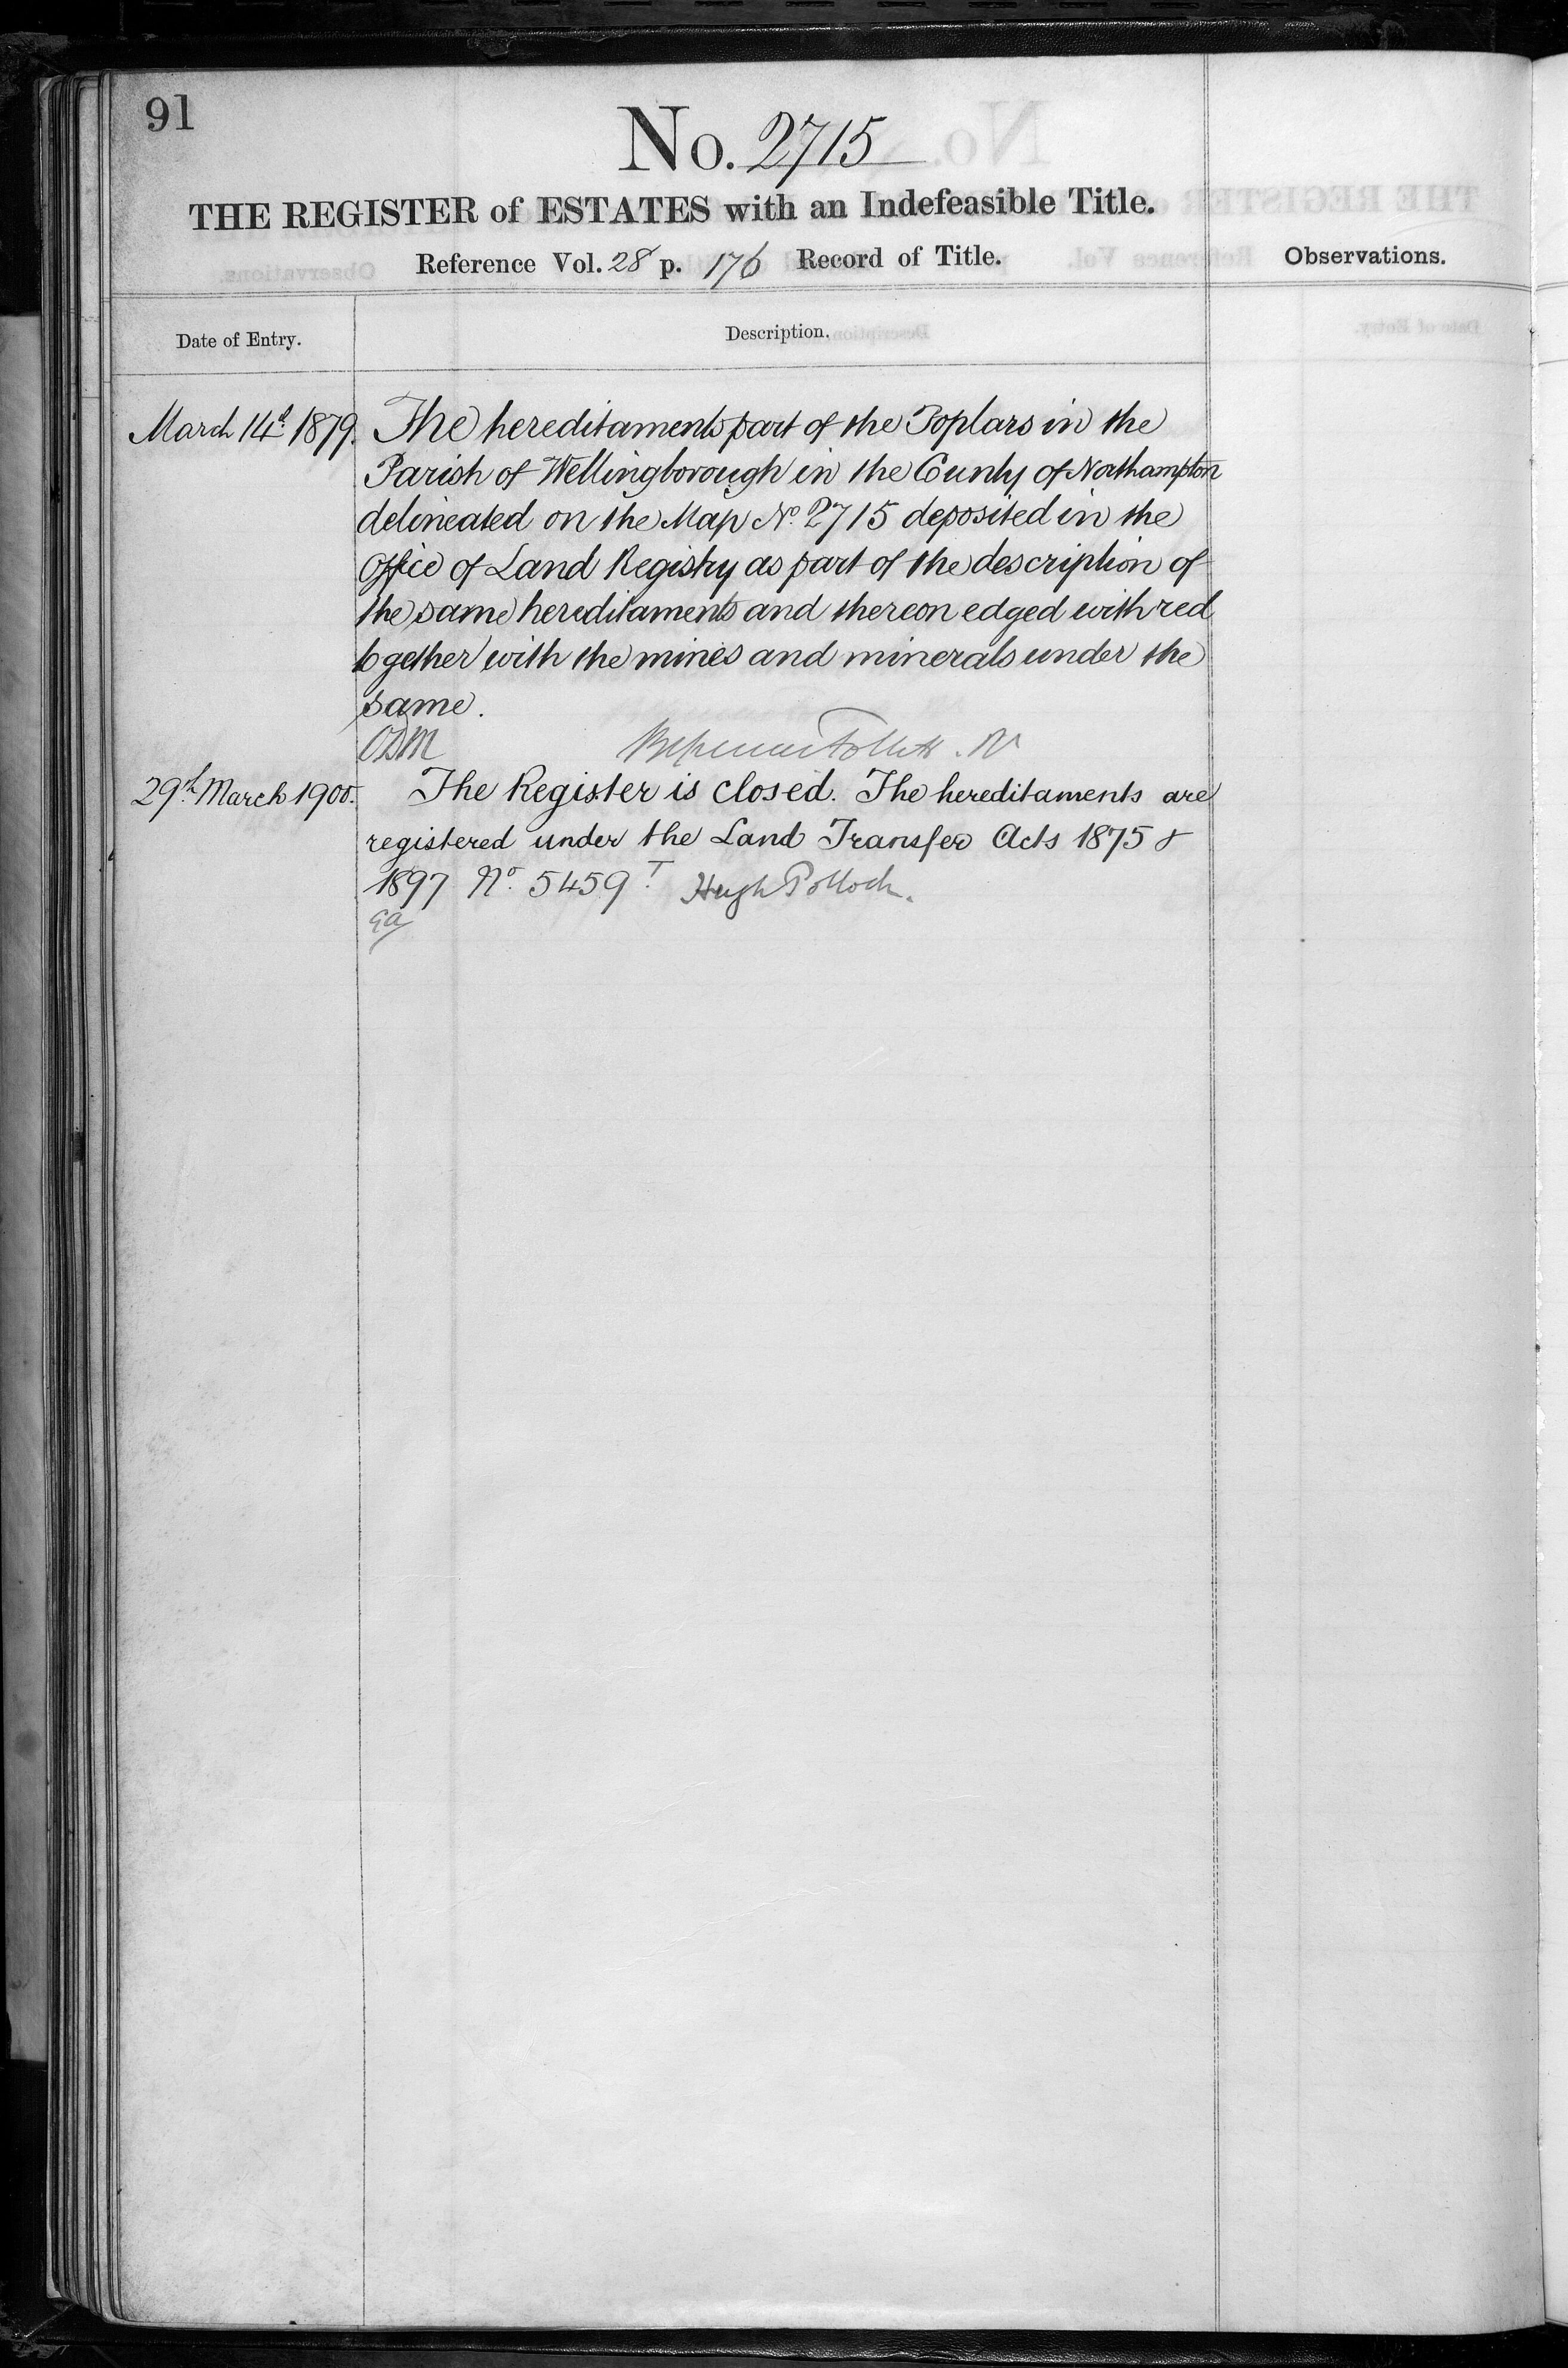 91
No. 2715
THE REGISTER of ESTATES with an Indefeasible Title.
Reference Vol. 28 p. 176 Record of Title.
Observations.
Date of Entry.
Description.
March 14th 1879. The hereditaments part of the Poplars in the
Parish of Wellingborough in the County of Northampton
delineated on the Map No. 2715 deposited in the
Office of Land Registry as part of the description of
the same hereditaments and thereon edged with red
together with the mines and minerals under the
same.
29th March 1900. The Register is closed. The hereditaments are
registered under the Land Transfer Acts 1875 &
1897 No. 5459 T Hugh Pollock.